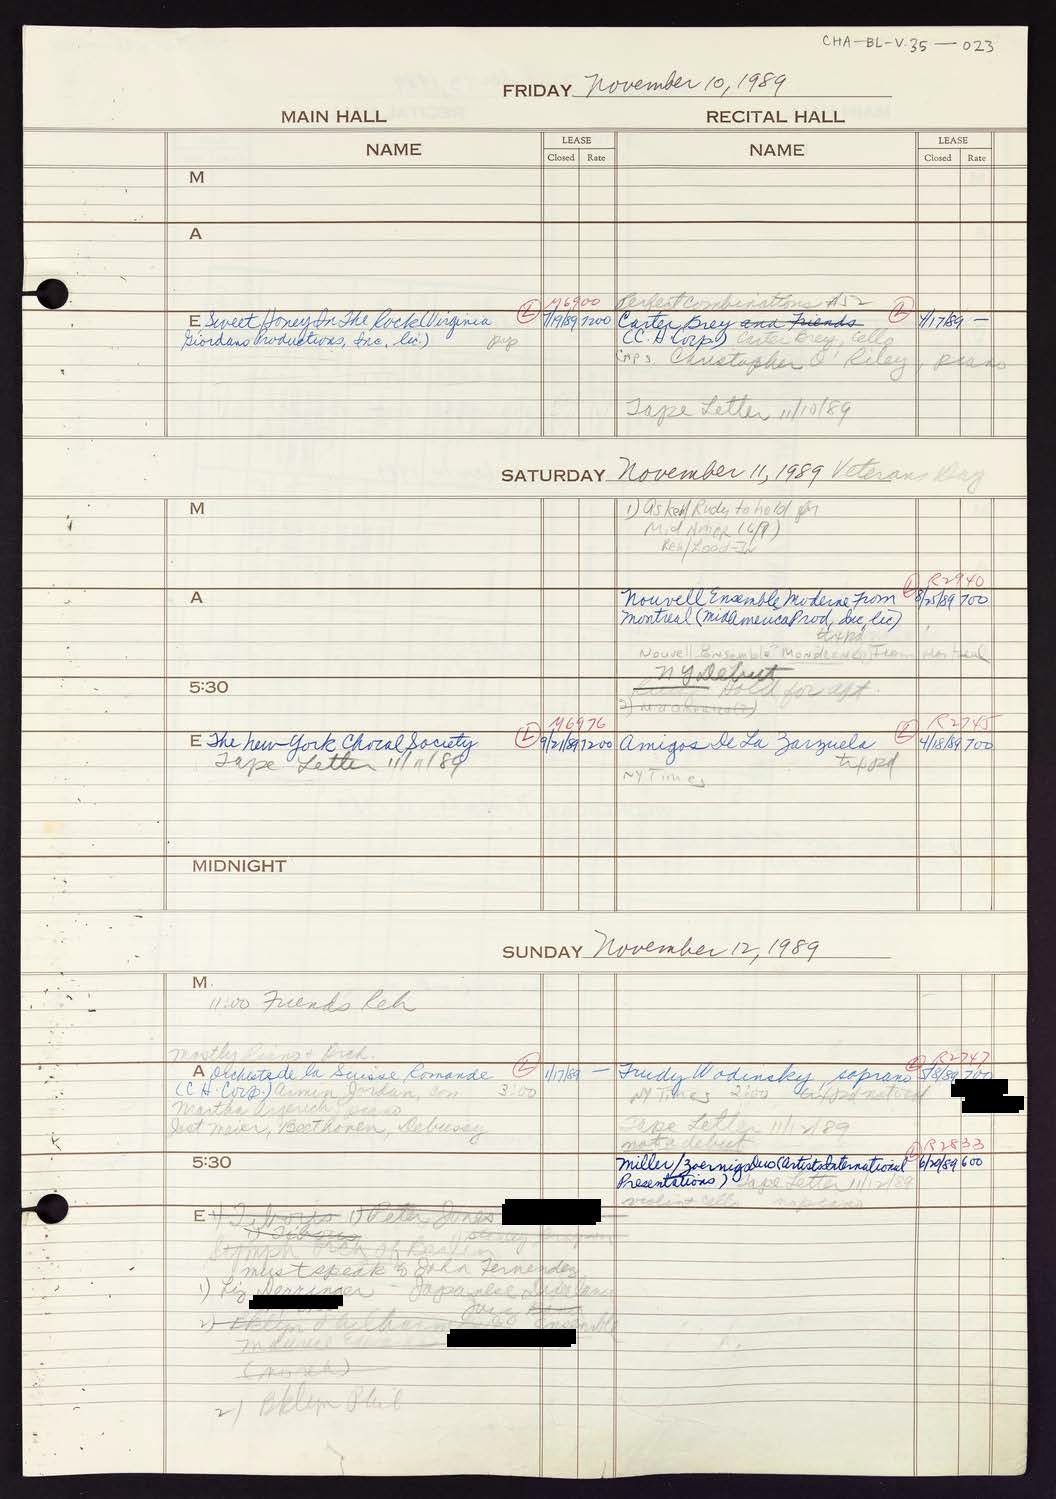 CHA-BL-V.35 — 023
FRIDAY November 10, 1989
MAIN HALL RECITAL HALL
NAME LEASE Closed Rate NAME LEASE Closed Rate
M
A
M6900
Perfect Combinations A52
E Sweet Honey In The Rock (Virginia L 7200
Giordano Productions, Inc, lic) pop
Carter Brey and Friends L 4/17/89 —
(C.H Corp) Carter Brey, cello
Christopher O'Riley, piano
Tape Letter 11/10/89
SATURDAY November 11, 1989 Veterans Day
M
1) Asked Rudy to hold for
Mid Amer (6/9)
Reh/Load-In
R2940
A
Nouvell Ensemble Moderne From L 8/25/89 700
Montreal (MidAmerica Prod, Inc, lic)
txpd
Nouvell Ensemble Moderne From Montreal
NY Debut
5:30
Hold for apt.
M6976 R2745
E The New York Choral Society L 9/21/89 7200
Tape Letter 11/11/89
Amigos De La Zarzuela L 4/18/89 700
txpd
NY Times
MIDNIGHT
SUNDAY November 12, 1989
M
11:00 Friends Reh
Mostly Piano + Orch.
R2747
A Orchestre de la Suisse Romande L 1/17/89 —
(C H Corp.) Armin Jordan, con 3:00
Martha Argerich, piano
Beethoven, Debussy
Trudy Wodinsky, soprano L 700
NY Times 2:00
Tape Letter 11/12/89
not a debut
R2833
5:30
Miller/Zoernig Duo (Artists International L 6/29/89 600
Presentations) Tape Letter 11/12/89
E 1) Peter Jones
Symph Orch of Berlin
must speak to John Fernendez
1) Liz Derringer - Japanese
2)
2) Bklyn Phil